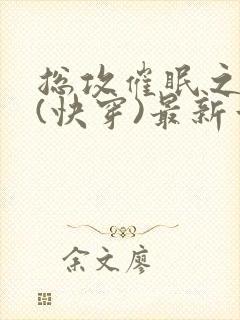 总攻催眠之
(快穿)最新
余文廖